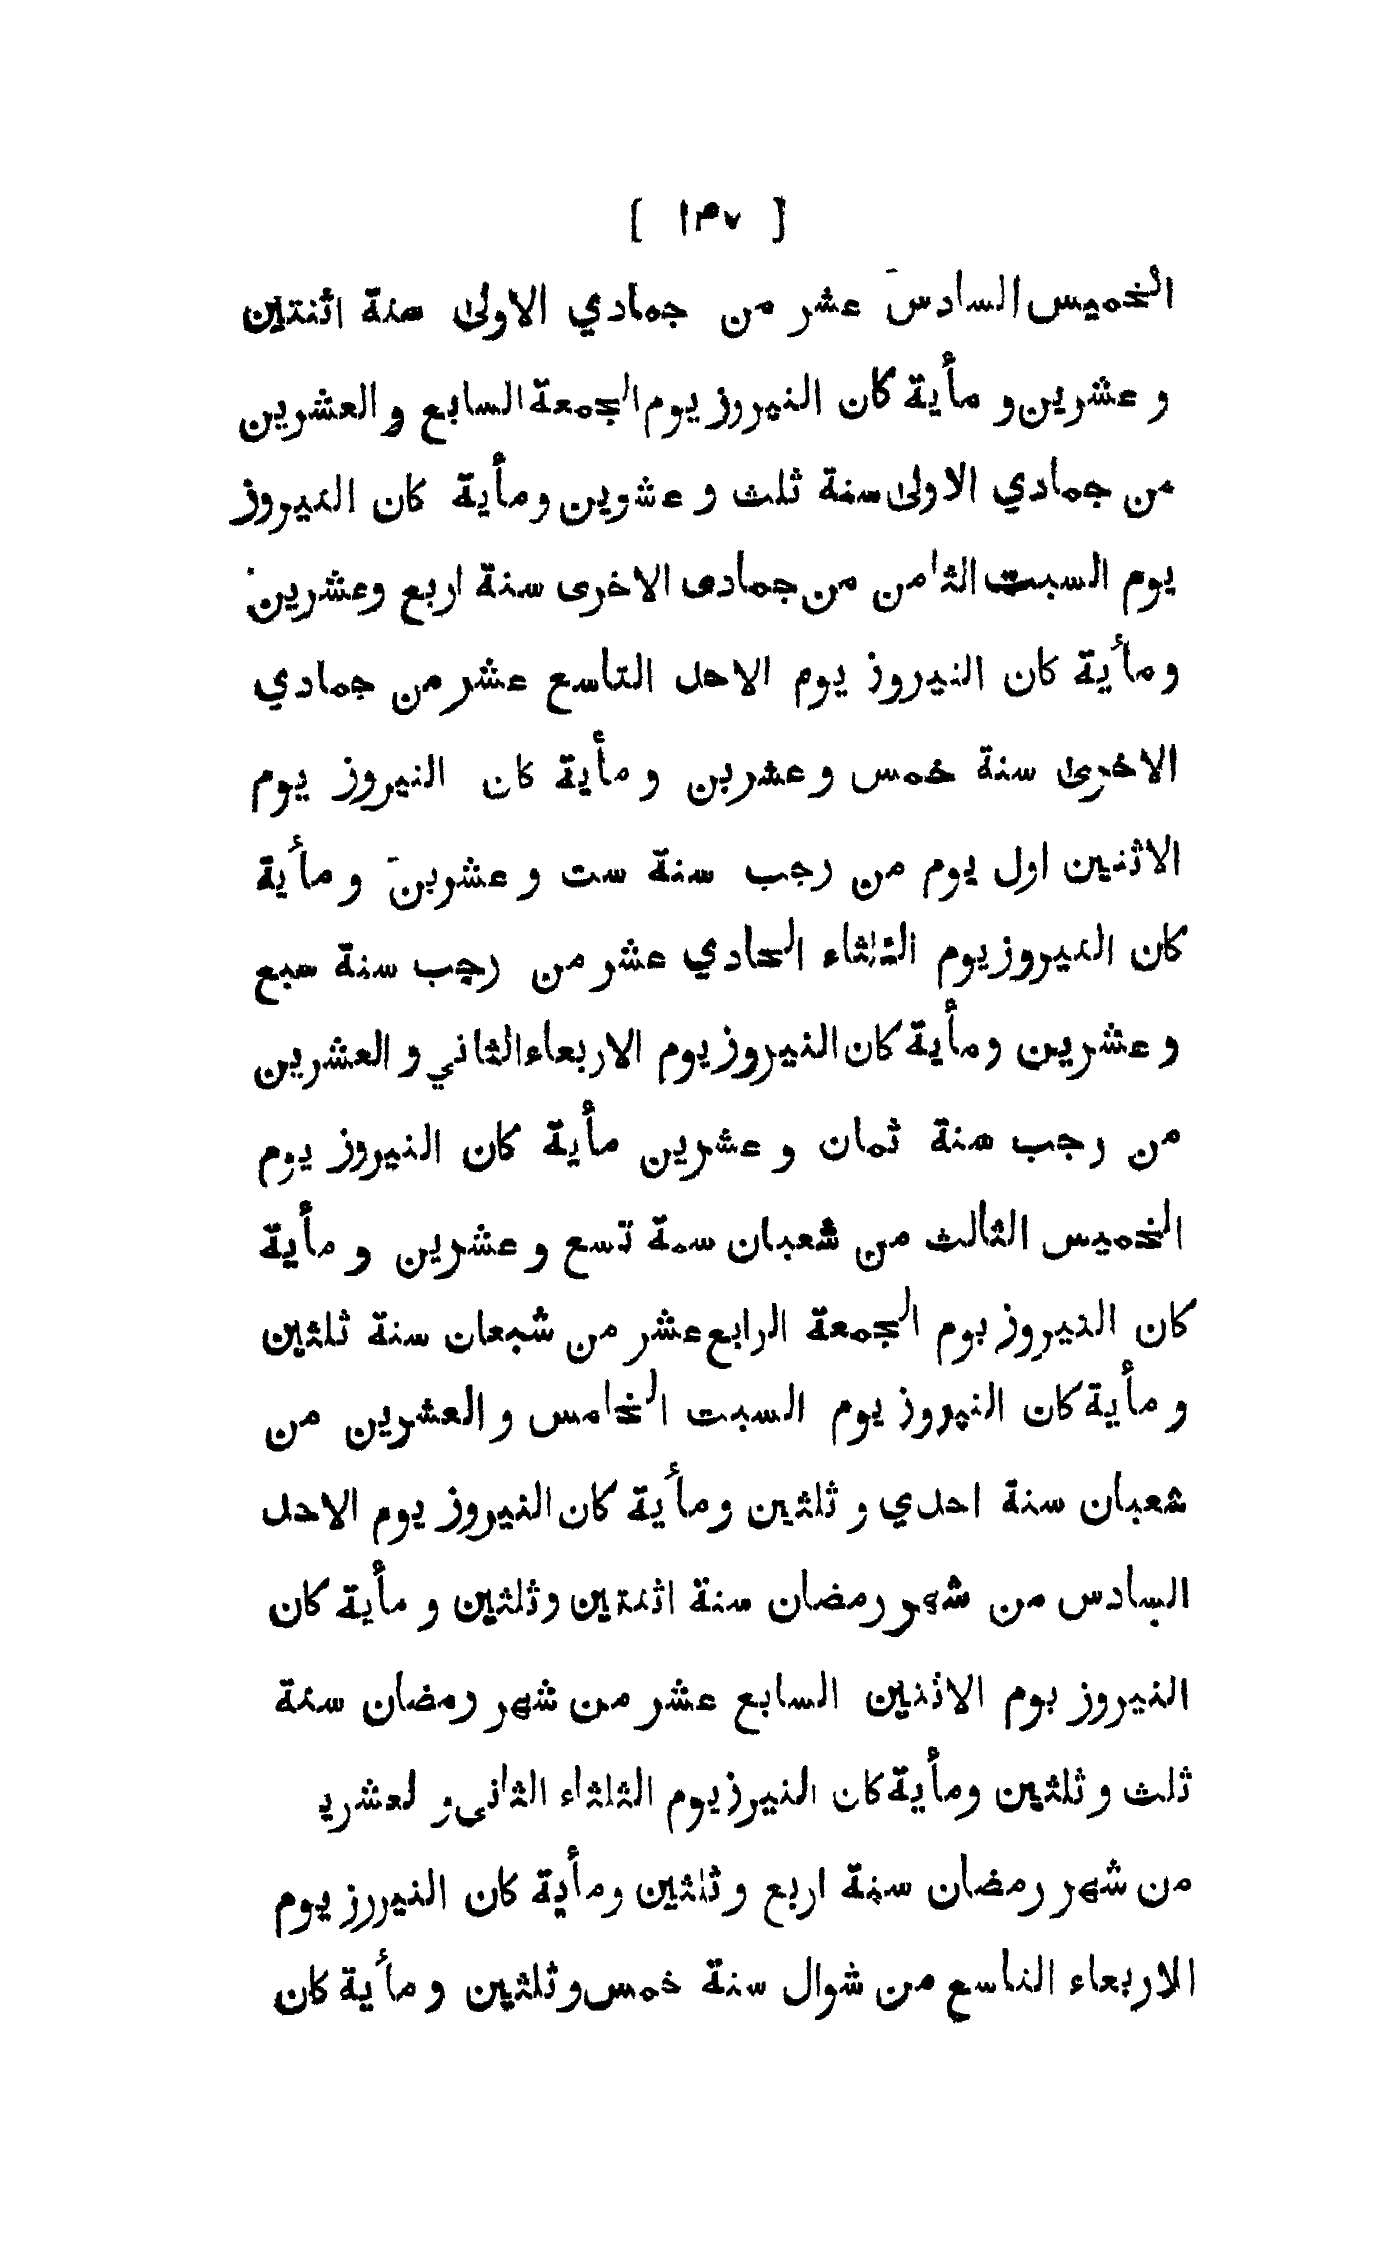 [ ١٣٧ ]
الخميس السادس عشر من جمادي الاولى سنة اثنتين
و عشرين و مأية كان النيروز يوم الجمعة السابع و العشرين
من جمادي الاولى سنة ثلث و عشوين ومأية كان النيروز
يوم السبت الثامن من جمادى الاخرى سنة اربع وعشرين
ومأية كان النيروز يوم الاحد التاسع عشر من جمادي
الاخرى سنة خمس و عشرين و مأية كان النيروز يوم
الاثنين اول يوم من رجب سنة ست و عشرين و مأية
كان النيروز يوم الثلثاء الحادي عشر من رجب سنة سبع
و عشرين ومأية كان النيروز يوم الاربعاء الثاني و العشرين
من رجب سنة ثمان و عشرين مأية كان النيروز يوم
الخميس الثالث من شعبان سنة تسع و عشرين و مأية
كان النيروز يوم الجمعة الرابع عشر من شبعان سنة ثلثين
و مأية كان النيروز يوم السبت الخامس و العشرين من
شعبان سنة احدي و ثلثين ومأية كان النيروز يوم الاحد
السادس من شهر رمضان سنة اثنتين وثلثين و مأية كان
النيروز يوم الاثنين السابع عشر من شهر رمضان سنة
ثلث و ثلثين ومأية كان النيرز يوم الثلثاء الثانى و لعشري
من شهر رمضان سنة اربع و ثلثين ومأية كان النيررز يوم
الاربعاء التاسع من شوال سنة خمس و ثلثين و مأية كان